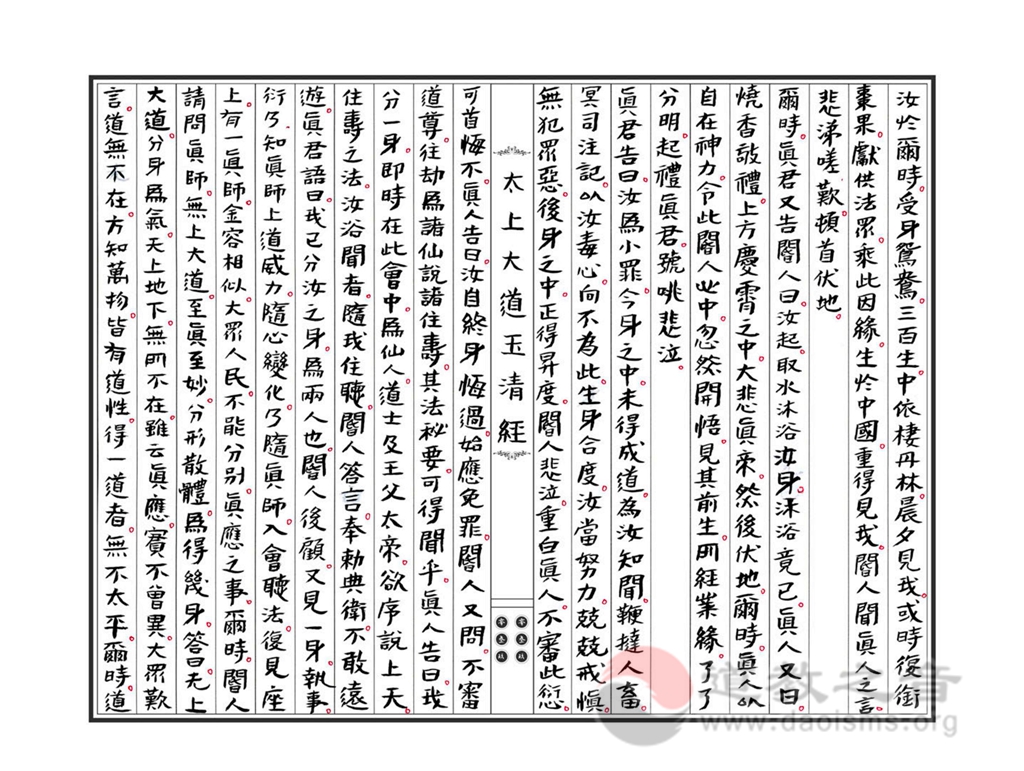 汝於爾時受身鴛鴦三百生中依棲丹林晨夕見我或時復銜
棗果獻供法眾乘此因緣生於中國重得見我閽人聞真人之言
悲涕嗟歎頓首伏地
爾時真君又告閽人曰汝起取水沐浴汝身沐浴竟已真人又曰
燒香敬禮上方慶霄之中大悲真帝然後伏地爾時真人以
自在神力令此閽人心中忽然開悟見其前生所經業緣了了
分明起禮真君號咷悲泣
真君告曰汝為小罪今身之中未得成道為汝知聞鞭撻人畜
冥司注記以汝毒心向不為此生身合度汝當努力兢兢戒慎
無犯眾惡後身之中正得昇度閽人悲泣重白真人不審此愆
太上大道玉清經
可首悔不真人告曰汝自終身悔過始應免罪閽人又問不審
道尊往劫為諸仙說諸住壽其法秘要可得聞乎真人告曰我
分一身即時在此會中為仙人道士及王父太帝欲序說上天
住壽之法汝浴聞者隨我住聽閽人答言奉勅典衛不敢遠
遊真君語曰我已分汝之身為兩人也閽人後顧又見一身執事
衍乃知真師上道威力隨心變化乃隨真師入會聽法復見座
上有一真師金容相似大眾人民不能分別真應之事爾時閽人
請問真師無上大道至真至妙分形散體為得幾身答曰无上
大道分身為氣天上地下無所不在雖云真應實不曾異大眾歎
言道無不在方知萬物皆有道性得一道者無不太平爾時道
道教之音
www.daoisms.org